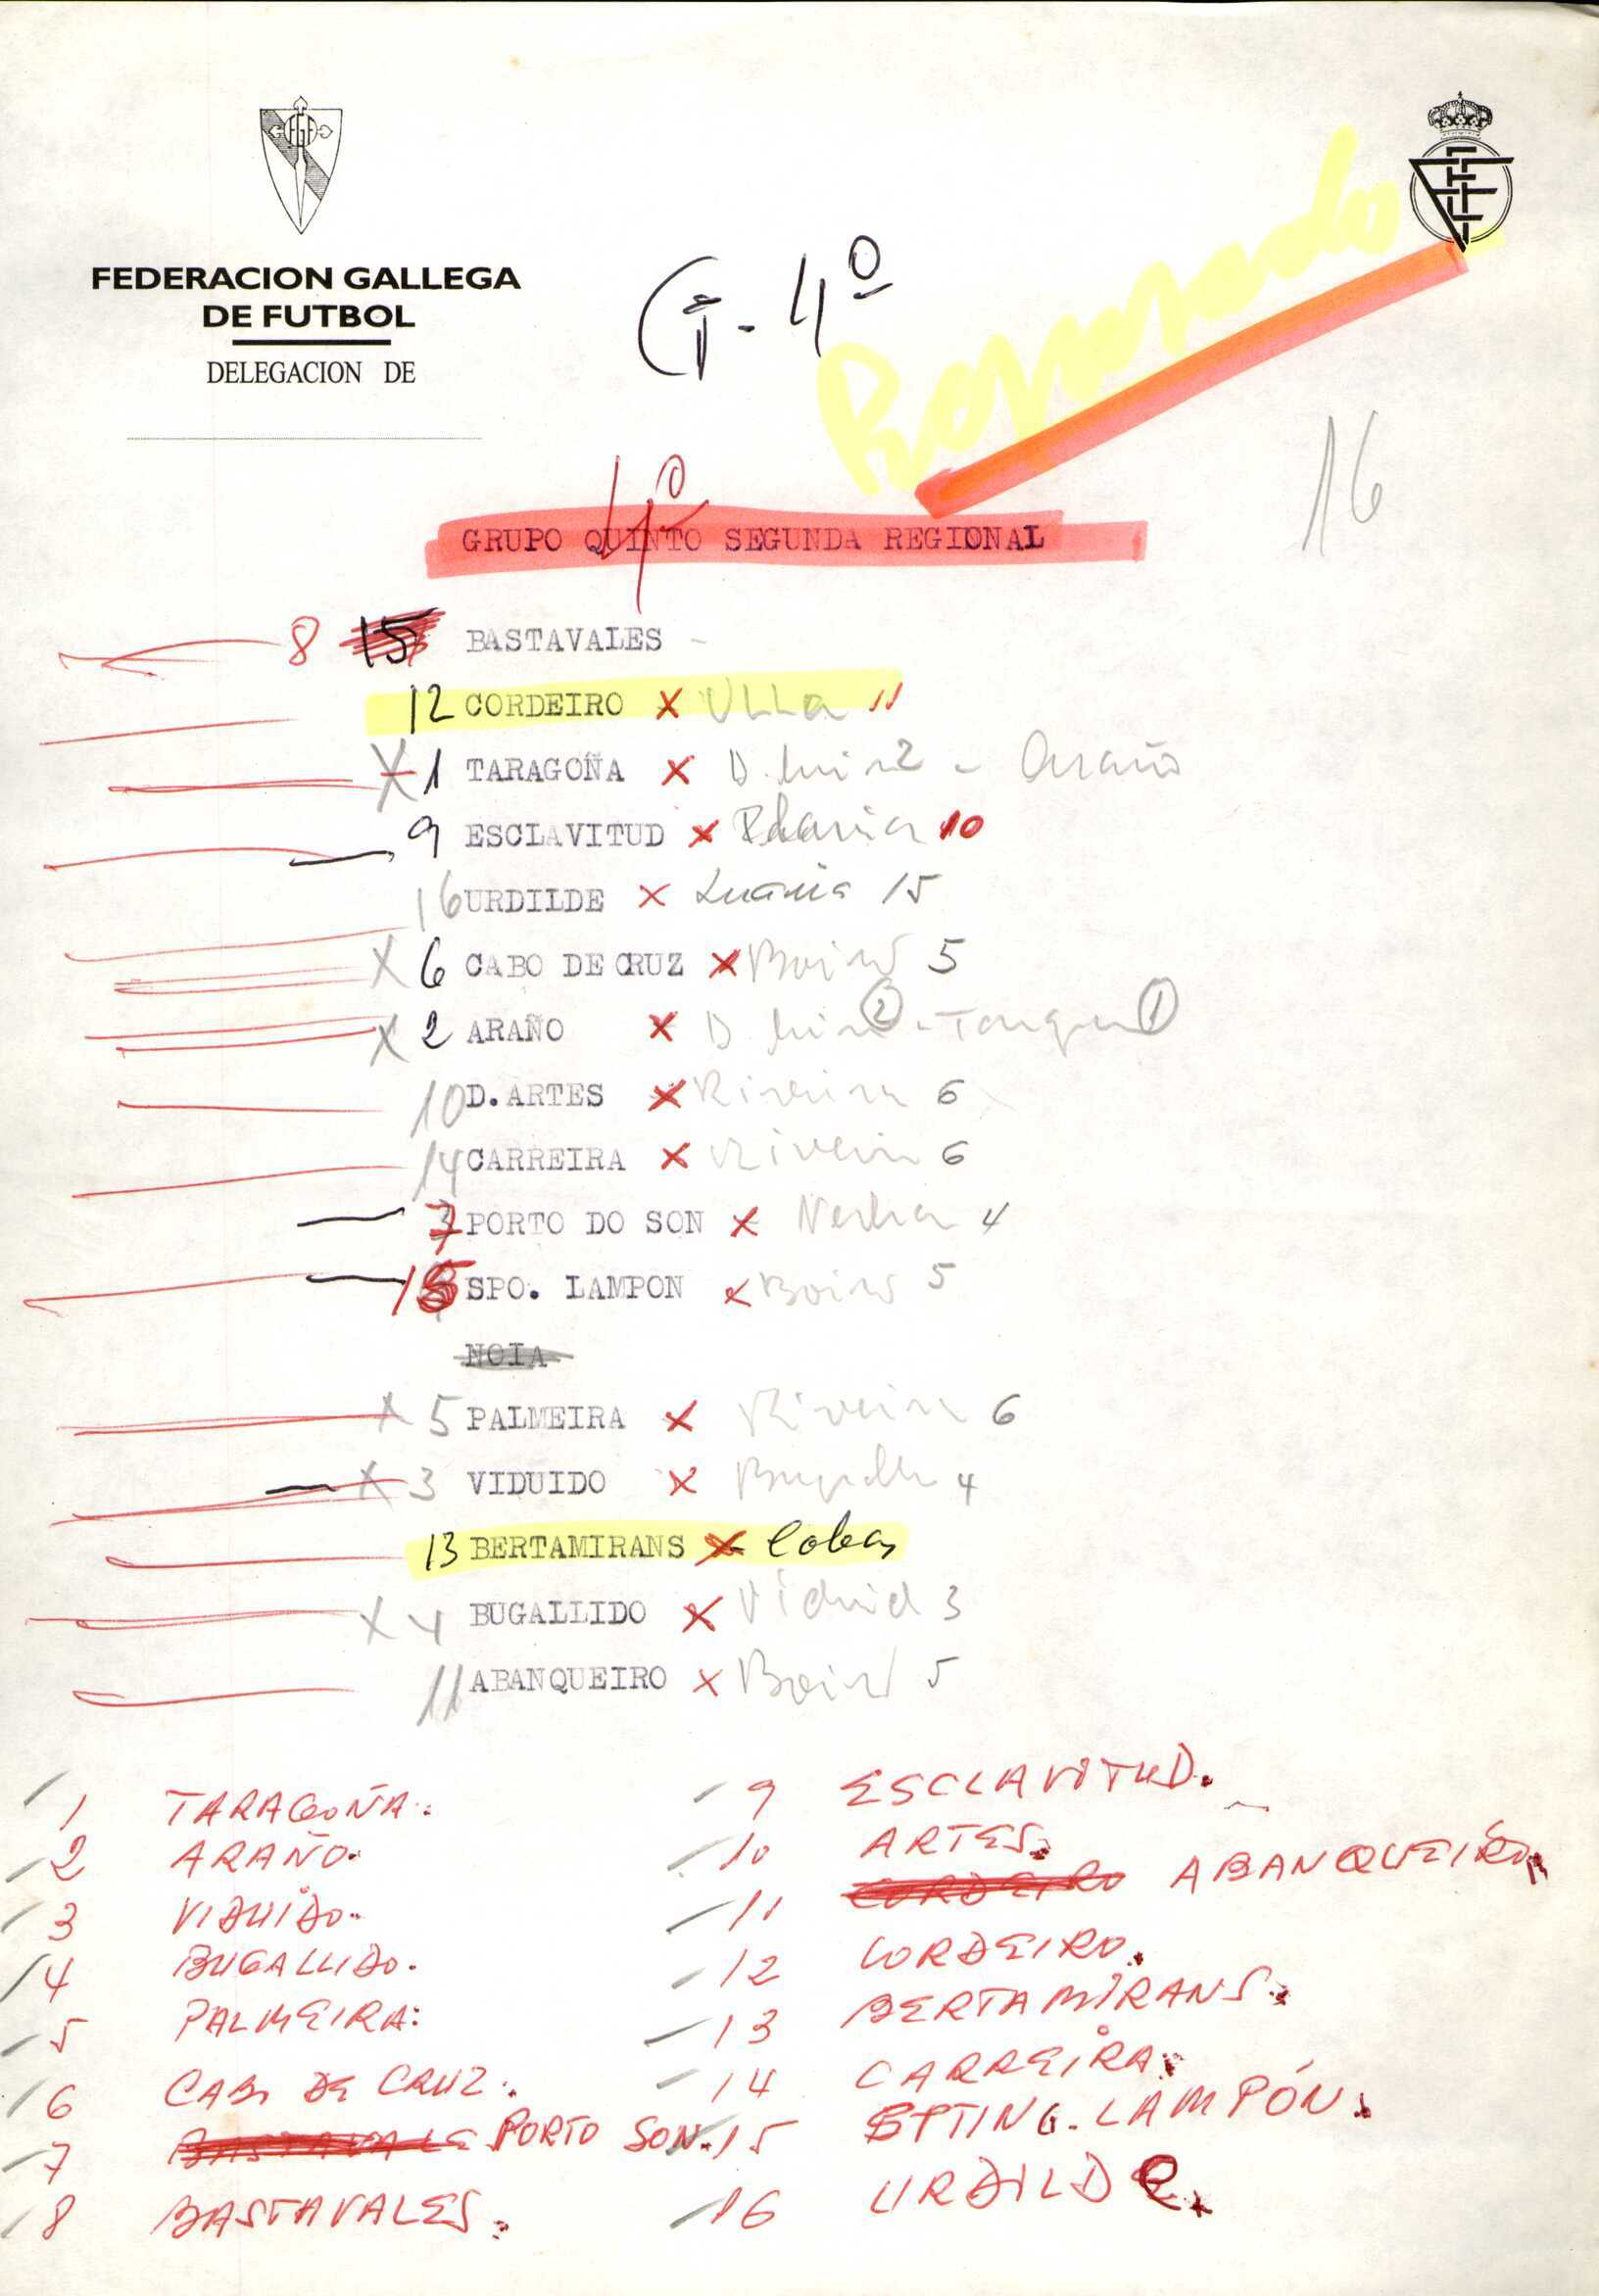 FEDERACION GALLEGA
DE FUTBOL
DELEGACION DE
G-4º
16
4º
GRUPO QUINTO SEGUNDA REGIONAL
8 15 BASTAVALES -
12 CORDEIRO x Ulla 11
x 1 TARAGOÑA x 2 - Araño
9 ESCLAVITUD x 10
16 URDILDE x 15
x 6 CABO DE CRUZ x Boiro 5
x 2 ARAÑO x D 2 - 1
10 D.ARTES x Riveira 6
14 CARREIRA x Riveira 6
7 PORTO DO SON x 4
15 SPO. LAMPON x Boiro 5
NOIA
x 5 PALMEIRA x Riveira 6
x 3 VIDUIDO x Bugallido 4
13 BERTAMIRANS x
x 4 BUGALLIDO x Viduido 3
11 ABANQUEIRO x Boiro 5
1 TARAGOÑA.
2 ARAÑO.
3 VIDUIDO.
4 BUGALLIDO.
5 PALMEIRA.
6 CABO DE CRUZ.
7 BASTAVALE PORTO SON.
8 BASTAVALES.
9 ESCLAVITUD.
10 ARTES.
11 CORDEIRO ABANQUEIRO
12 CORDEIRO.
13 BERTAMIRANS.
14 CARREIRA.
15 SPTING. LAMPÓN.
16 URDILDE.